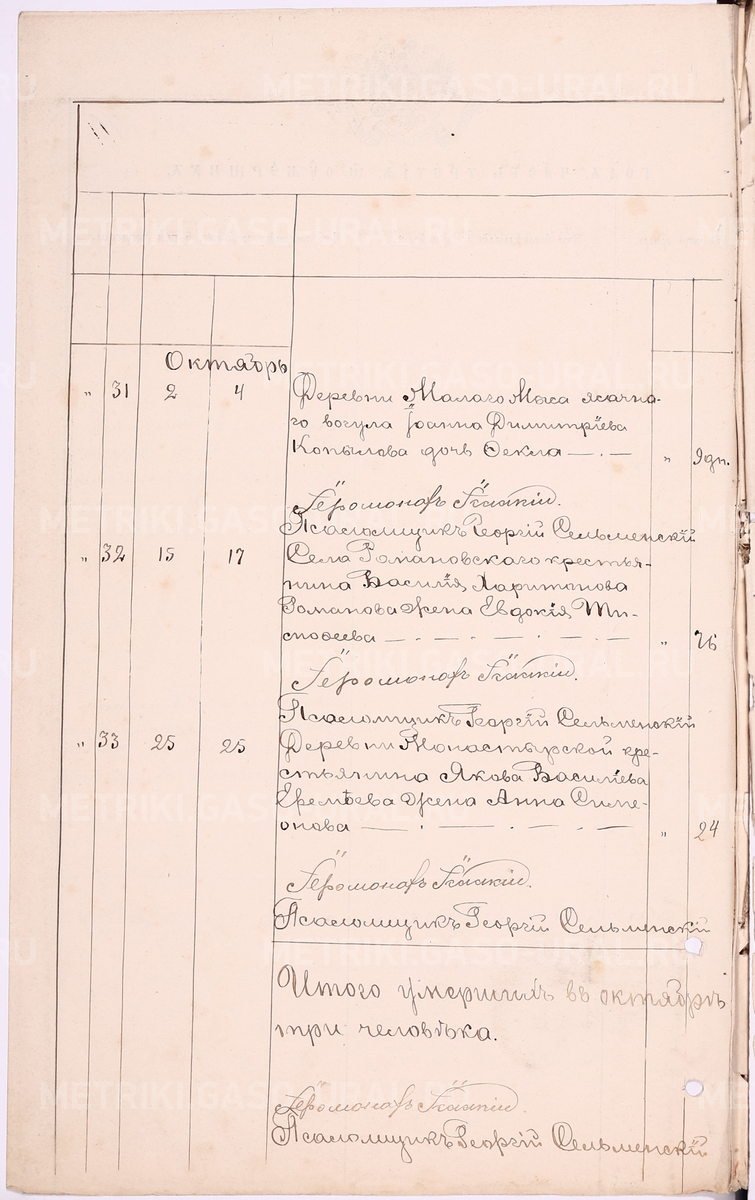 METRIKI.GASO-URAL.RU
Октябрь
" 31 2 4 Деревни Малаго Мыса ясачна-
го вогула Іоанна Димитріева
Копылова дочь Ѳекла — . — " 9 дн.
Іеромонахъ
Псаломщикъ Георгій Сельменскій
" 32 15 17 Села Романовскаго крестья-
нина Василія Харитонова
Романова жена Евдокія Ти-
моѳеева — . — . — . — . — " 76
Іеромонахъ
Псаломщикъ Георгій Сельменскій
" 33 25 25 Деревни Монастырской кре-
стьянина Якова Василіева
Еремѣева жена Анна Симе-
онова — . — . — . — " 24
Іеромонахъ
Псаломщикъ Георгій Сельменскій
Итого умершихъ въ октябрѣ
три человѣка.
Іеромонахъ
Псаломщикъ Георгій Сельменскій